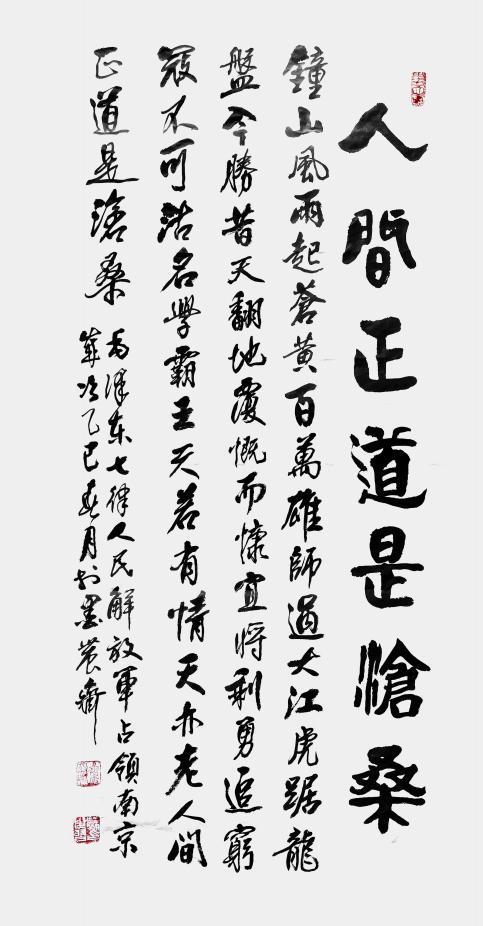 人間正道是滄桑
鐘山風雨起蒼黃百萬雄師過大江虎踞龍
盤今勝昔天翻地覆慨而慷宜将剩勇追窮
寇不可沽名學霸王天若有情天亦老人間
正道是滄桑
毛澤东七律人民解放軍占領南京
歲次乙巳春月於墨農齋